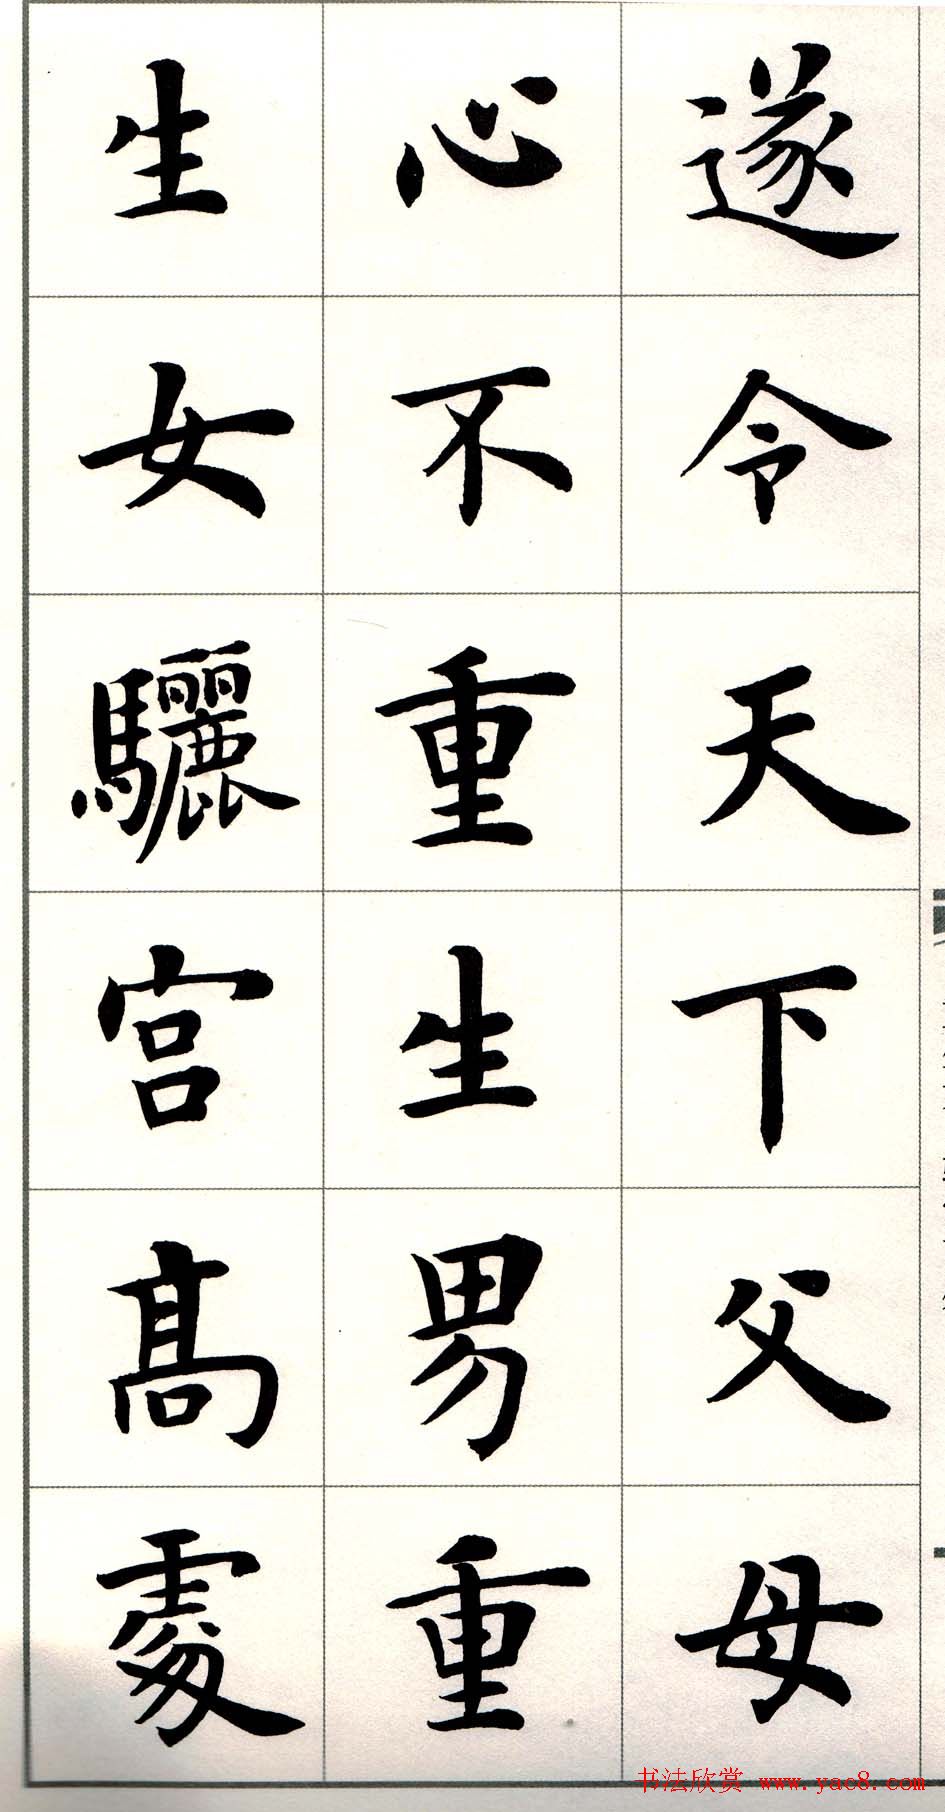 遂令天下父母
心不重生男重
生女驪宮高處
书法欣赏 www.yac8.com